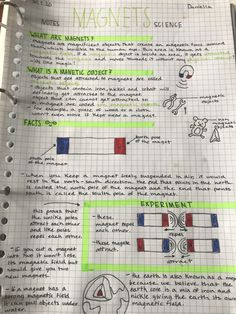 Daniella
NOTES MAGNETS SCIENCE
WHAT ARE MAGNETS?
magnets are magnificent objects that create an magnetic force around
them which is invisible to the human eye. This area is known as a
. If a object is inside an area, it gets
towards the and moves towards it without any
like magic!
WHAT IS A MANETIC OBJECT?
objects that get attracted to magnets are called
objects that contain iron, nickel and cobalt will
definately get attracted to the magnet.
object that can cannot get attracted to
a magnet is called
for example a piece of wood or a plastic bag
won't even move if kept near a magnet.
magnetic
objects
non-
magnetic
objects
FACTS
north pole
of the magnet
south pole
of the magnet
-when you keep a magnet freely suspended in air, it would
rest in the north-south direction. The end that points in the north
is called the north pole of the magnet and the end that points
south is called the south pole of the magnet.
this proves that
the unlike poles
attract each other
and like poles
repel each other.
EXPERIMENT
-these
magnets repel
each other
-these magnets
attract.
repel
attract
-if you cut a magnet
into two it won't lose
its magnetic field but
should give you two
new magnets.
-if a magnet has a
strong magnetic field
it can pull objects under
water.
-the earth is also known as a
because we believe that the
earth core is a mix of iron and
nickle giving the earth its own
magnetic field.